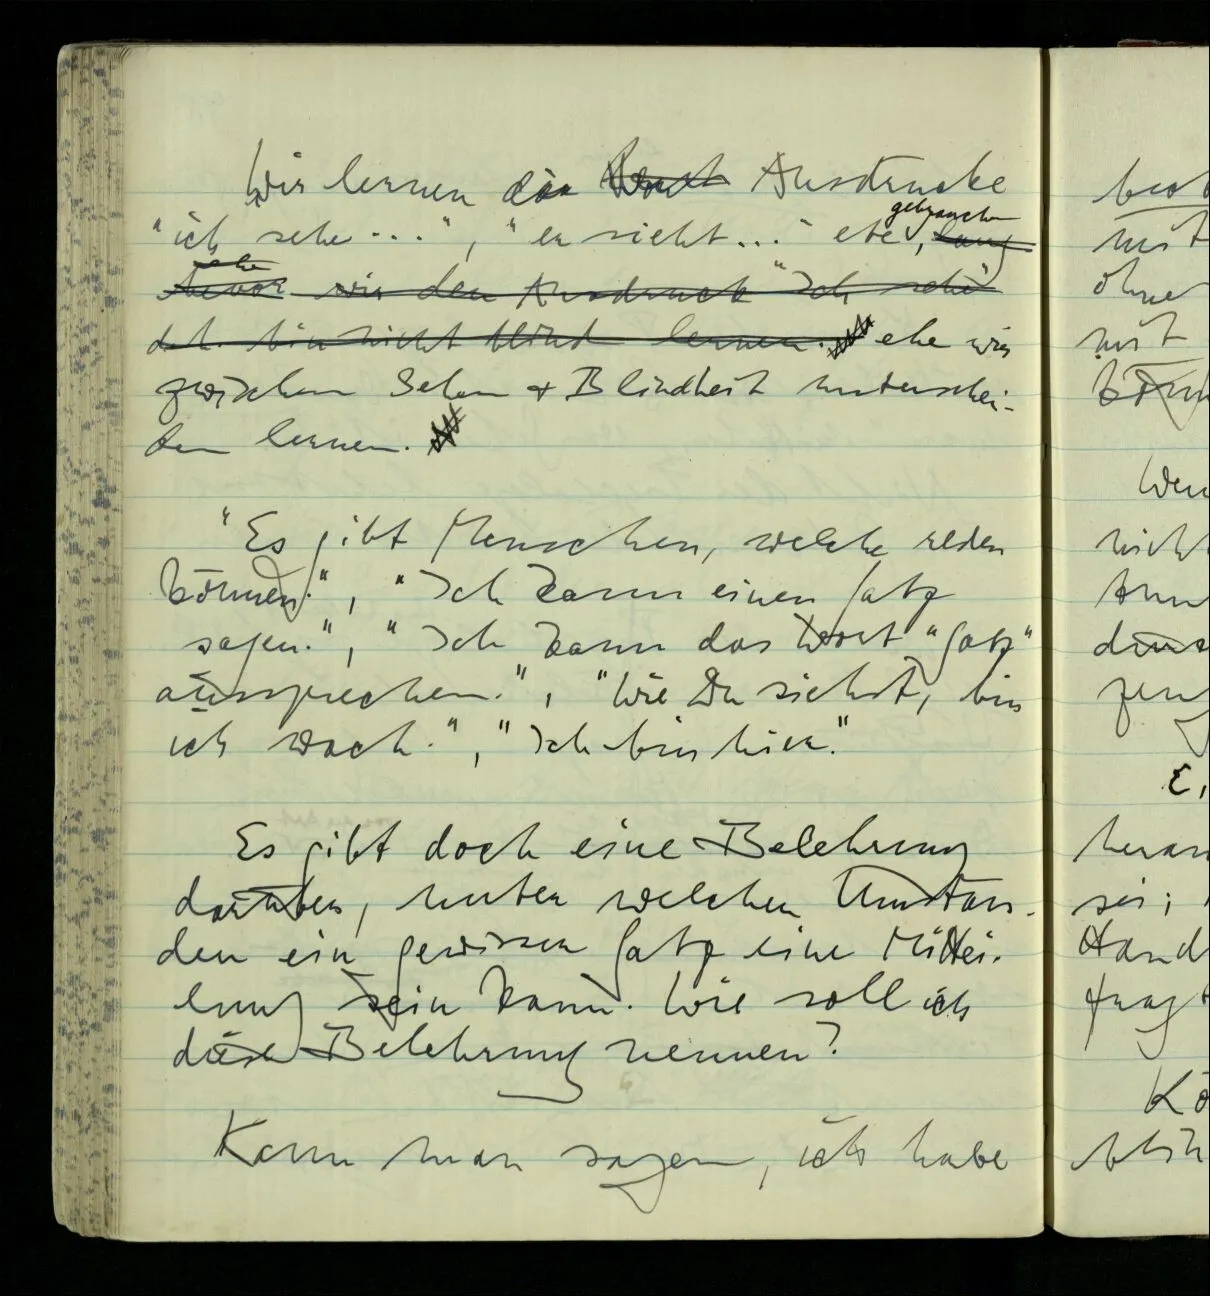 Wir lernen die Wort Ausdrucke
gebrauchen
"ich sehe ...", "er sieht ..." etc, lang
ehe
bevor wir den Ausdruck "Ich sehe"
d.h. bin nicht blind lernen. ehe wir
zwischen Sehen + Blindheit unterschei-
den lernen.
"Es gibt Menschen, welche reden
können.", "Ich kann einen Satz
sagen.", "Ich kann das Wort "Satz"
aussprechen.", "Wie Du siehst, bin
ich wach.", "Ich bin hier."
Es gibt doch eine Belehrung
darüber, unter welchen Umstän-
den ein gewisser Satz eine Mittei-
lung sein kann. Wie soll ich
diese Belehrung nennen?
Kann man sagen, ich habe
mit
ohne
mit
Wen
nich
E,
heran
sei;
Hand
fragt
Kö